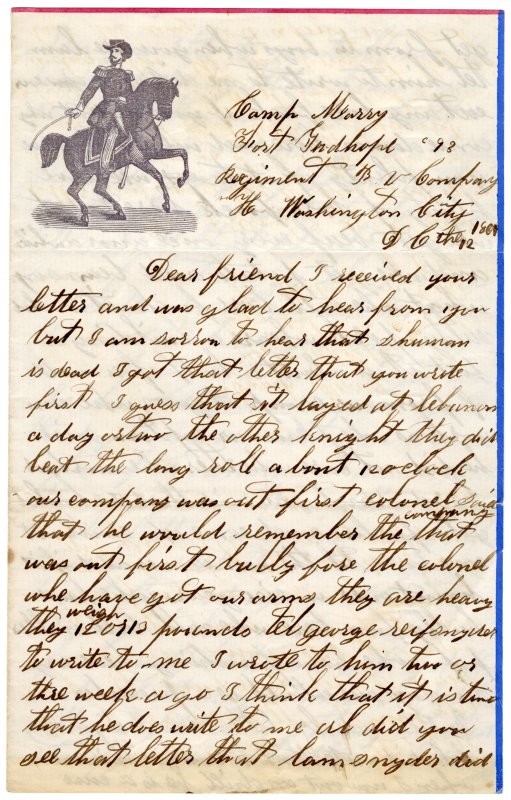 Camp Mcarry
Fort Goodhope c 93
Regiment P V Company
H Washington City
D C the 12 1861
Dear friend I received your
letter and was glad to hear from you
but I am sorrow to hear that shuman
is dead I got that letter that you wrote
first I guess that it layed at lebanon
a day or two the other knight they did
beat the long roll about 12 oclock
our company was out first colonel said
that he would remember the company that
was out first bully fore the colonel
whe have got our arms they are heavy
they weigh 12 or 13 pounds tel george reifsnyder
to write to me I wrote to him two or
thre week a go I think that it is time
that he does write to me al did you
see that letter that lam snyder did